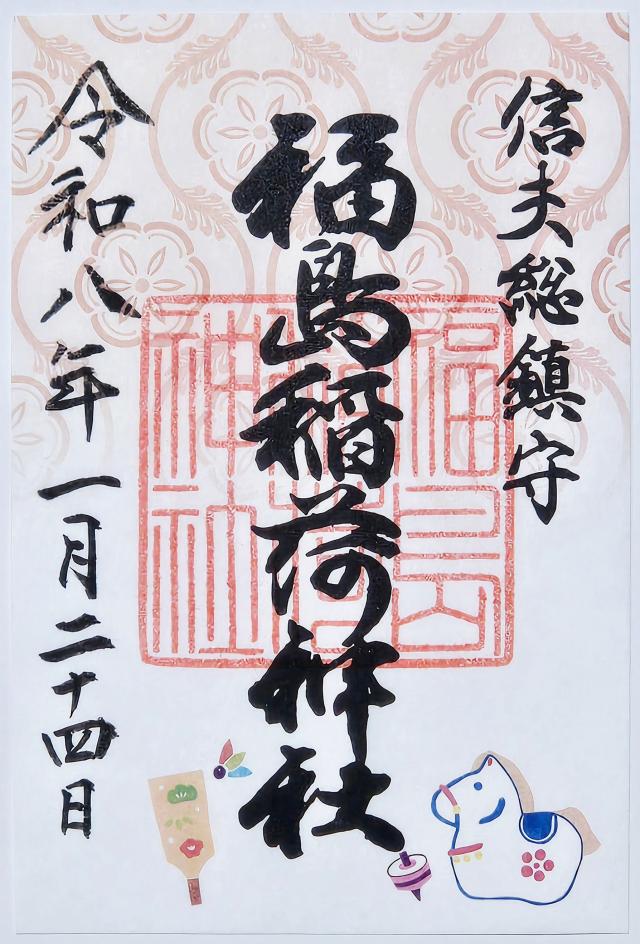 信夫総鎮守
福島稲荷神社
福島稲荷神社
令和八年一月二十四日